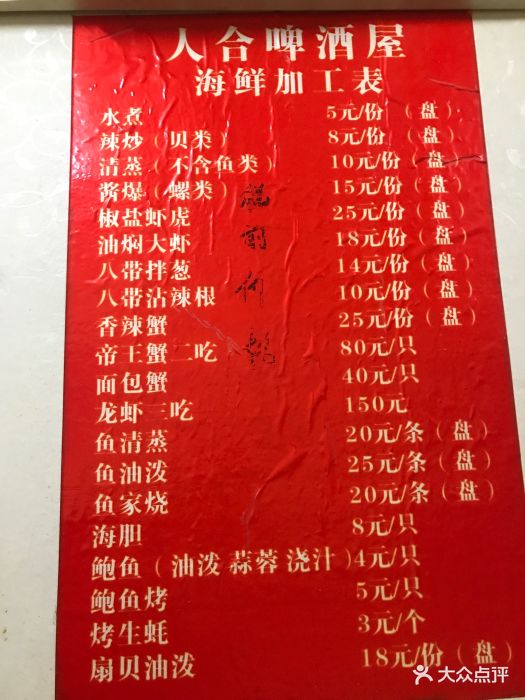 人合啤酒屋
海鲜加工表
水煮 5元/份（盘）
辣炒（贝类） 8元/份（盘）
清蒸（不含鱼类） 10元/份（盘）
酱爆（螺类） 15元/份（盘）
椒盐虾虎 25元/份（盘）
油焖大虾 18元/份（盘）
八带拌葱 14元/份（盘）
八带沾辣根 10元/份（盘）
香辣蟹 25元/份（盘）
帝王蟹二吃 80元/只
面包蟹 40元/只
龙虾三吃 150元
鱼清蒸 20元/条（盘）
鱼油泼 25元/条（盘）
鱼家烧 20元/条（盘）
海胆 8元/只
鲍鱼（油泼 蒜蓉 浇汁）4元/只
鲍鱼烤 5元/只
烤生蚝 3元/个
扇贝油泼 18元/份（盘）
大众点评